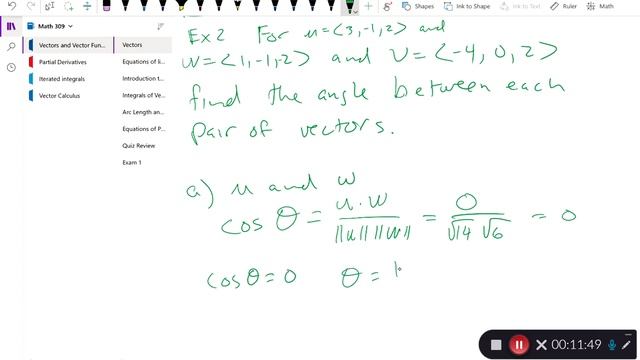 Shapes
Ink to Shape
Ink to Text
Ruler
Insert
Math 309
Vectors and Vector Fun...
Partial Derivatives
Iterated integrals
Vector Calculus
Vectors
Equations of li...
Introduction t...
Integrals of Ve...
Arc Length an...
Equations of P...
Quiz Review
Exam 1
Ex 2 For u = <3, -1, 2> and
w = <1, -1, -2> and v = <-4, 0, 2>
find the angle between each
pair of vectors.
a) u and w
cos θ = u · w / ||u|| ||w|| = 0 / √14 √6 = 0
cos θ = 0 θ =
00:11:49